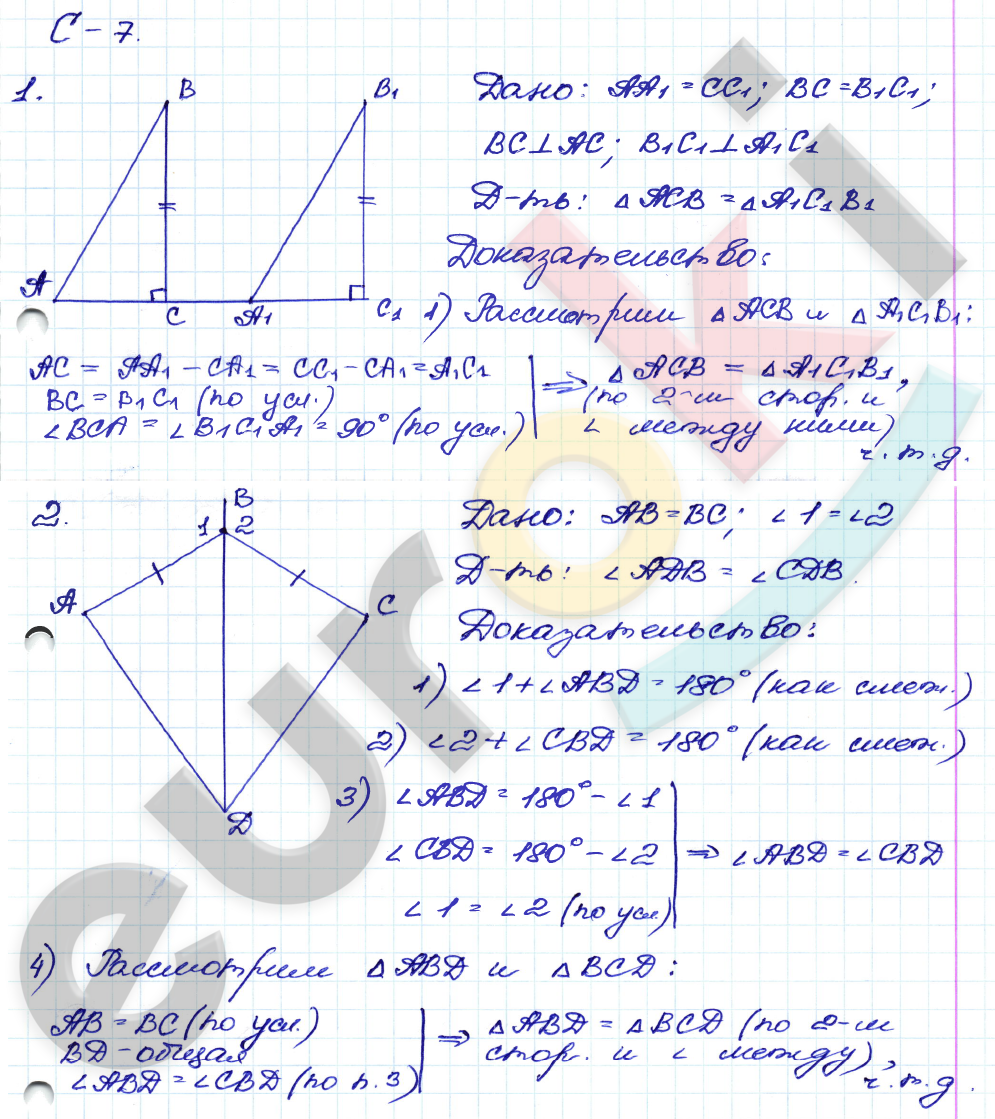 С – 7.
1.
B
B₁
A
C
A₁
C₁
Дано: AA₁ = CC₁; BC = B₁C₁;
BC⊥AC; B₁C₁⊥A₁C₁
Д-ть: △ACB = △A₁C₁B₁
Доказательство:
1) Рассмотрим △ACB и △A₁C₁B₁:
AC = AA₁ – CA₁ = CC₁ – CA₁ = A₁C₁
BC = B₁C₁ (по усл.)
∠BCA = ∠B₁C₁A₁ = 90° (по усл.)
⇒ △ACB = △A₁C₁B₁,
(по 2-м стор. и
∠ между ними)
ч.т.д.
2.
B
1 2
A
C
D
Дано: AB = BC; ∠1 = ∠2
Д-ть: ∠ADB = ∠CDB.
Доказательство:
1) ∠1 + ∠ABD = 180° (как смеж.)
2) ∠2 + ∠CBD = 180° (как смеж.)
3) ∠ABD = 180° – ∠1
∠CBD = 180° – ∠2
∠1 = ∠2 (по усл)
⇒ ∠ABD = ∠CBD
4) Рассмотрим △ABD и △BCD:
AB = BC (по усл.)
BD – общая
∠ABD = ∠CBD (по п.3)
⇒ △ABD = △BCD (по 2-м
стор. и ∠ между),
ч.т.д.
euroki